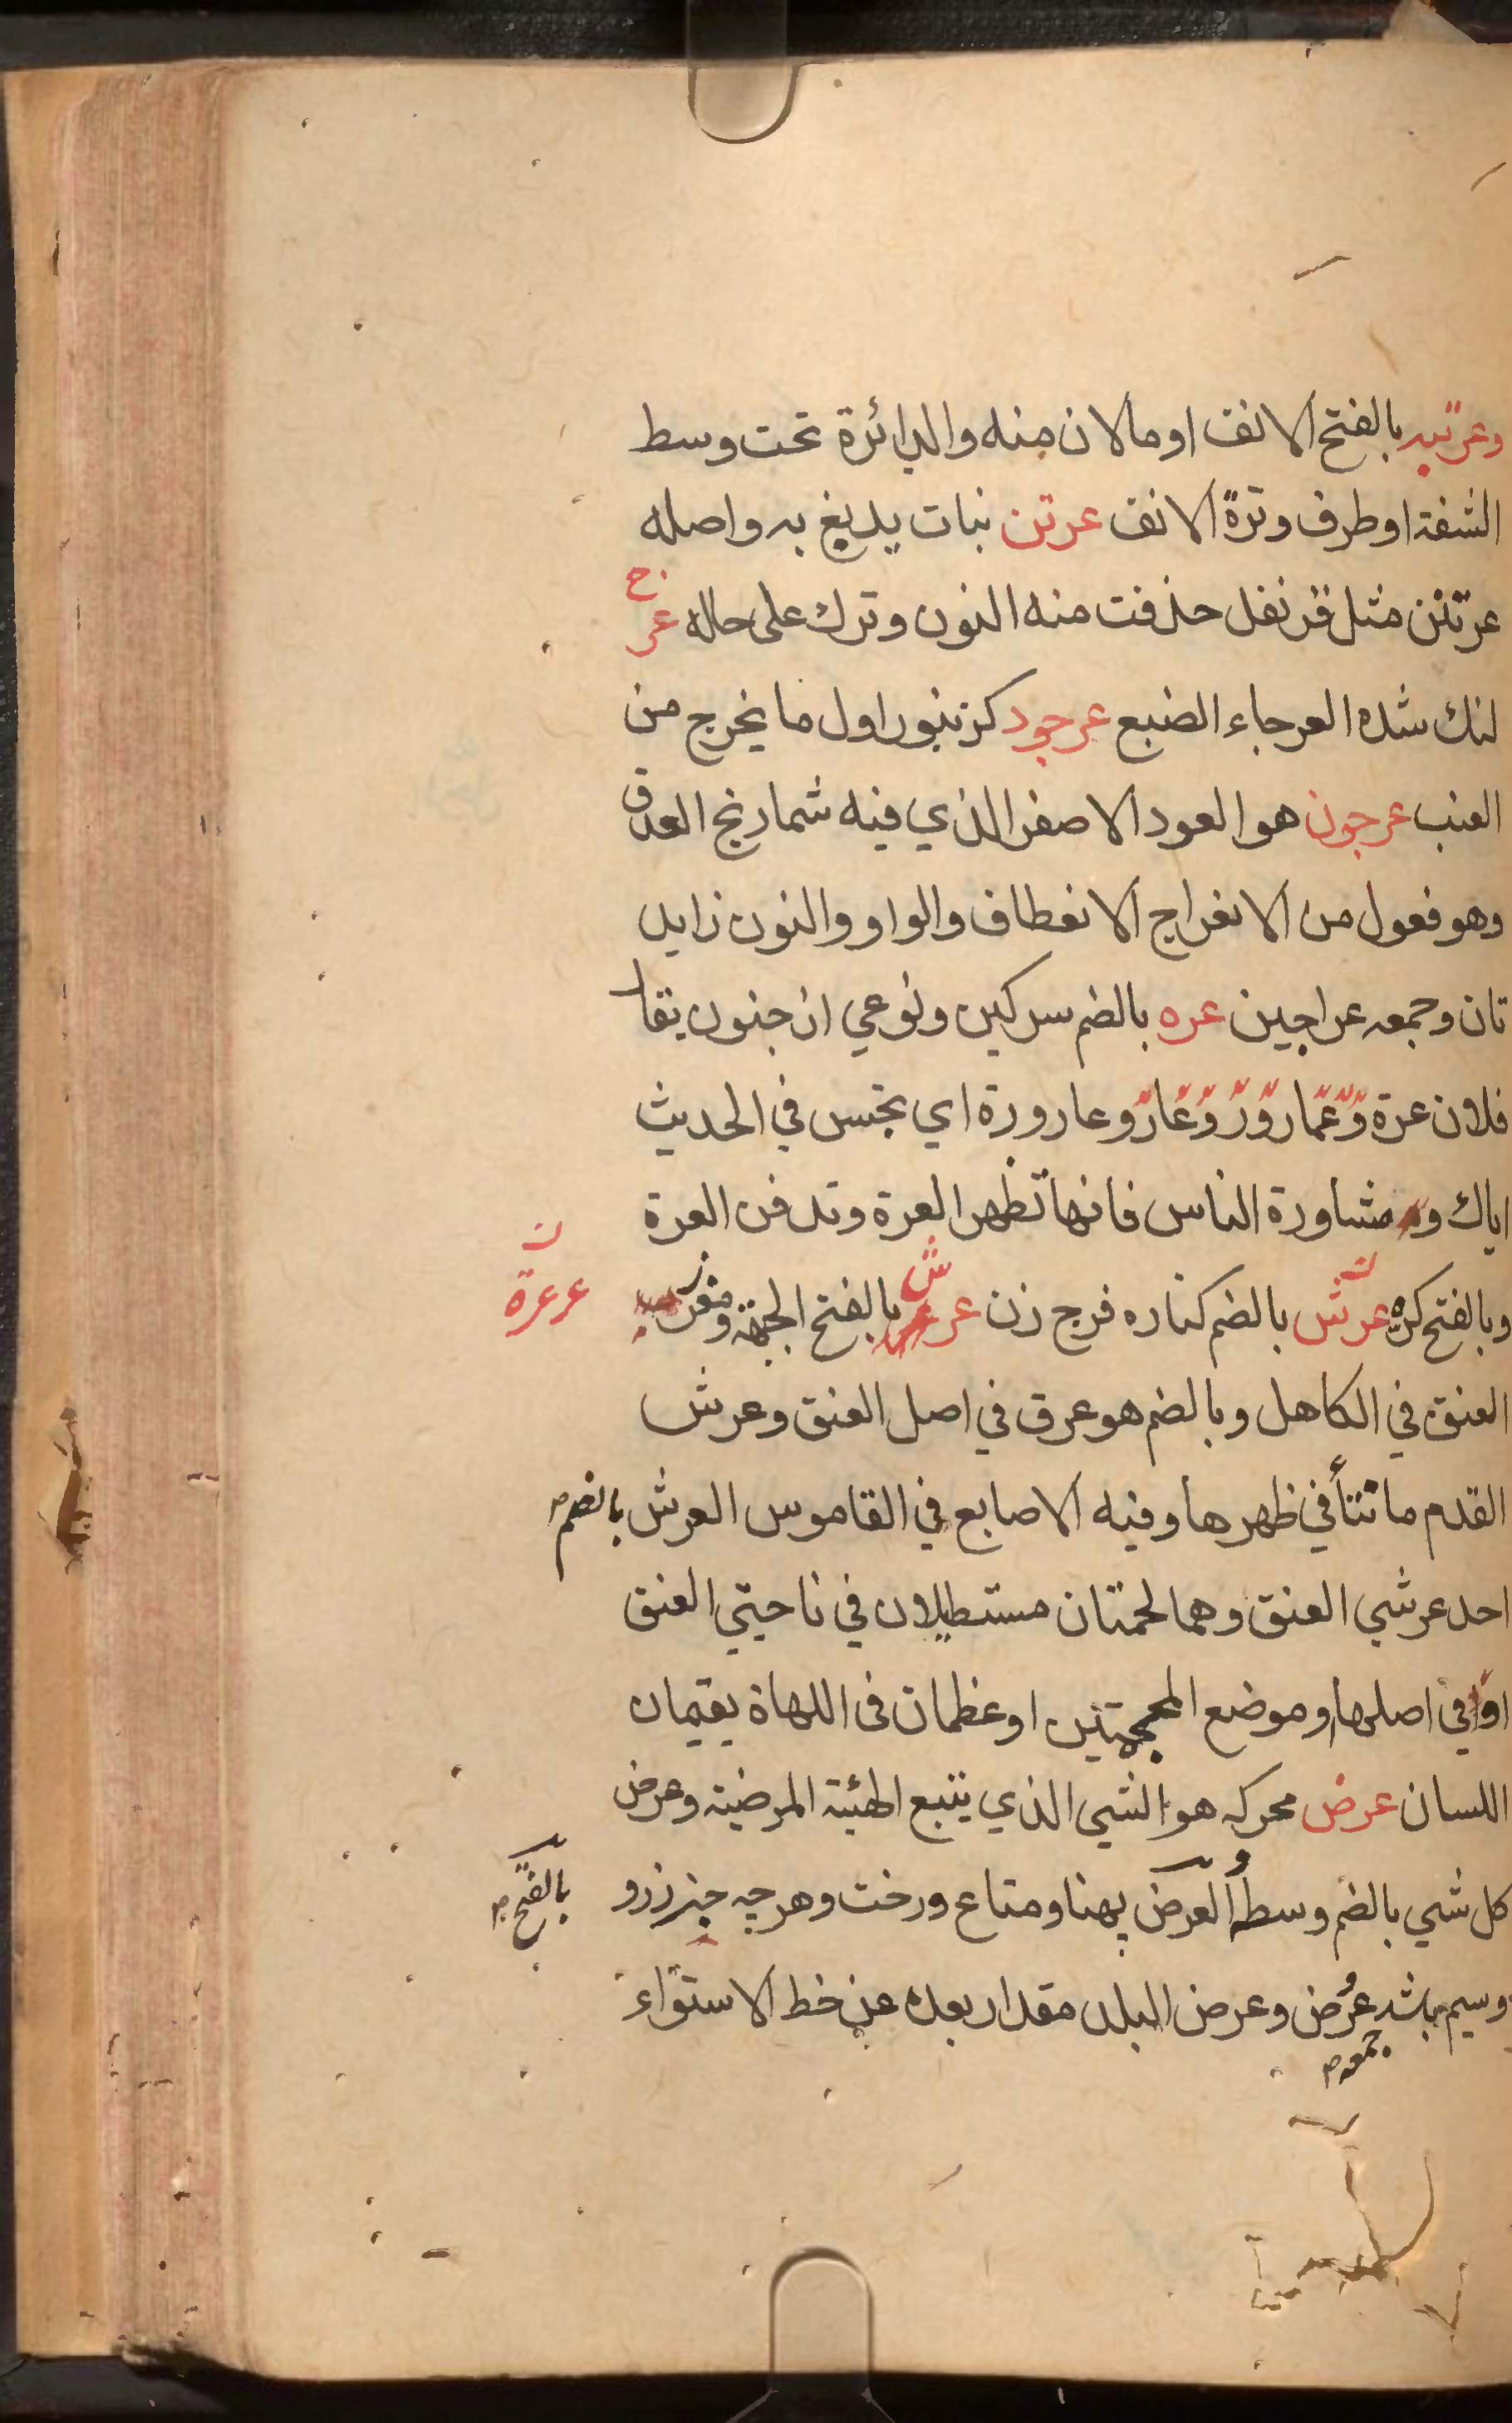 وعرتبه بالفتح الانف او مالان منه والدائرة تحت وسط
الشفة او طرف وترة الانف عرتن نبات يدبغ به واصله
عرتنن مثل قرنفل حذفت منه النون وترك على حاله عرج
لنك شده العرجاء الضبع عرجود كزنبور اول ما يخرج من
العنب عرجون هو العود الاصفر الذي فيه شماريخ العدق
وهو فعول من الانعراج الانعطاف والواو والنون زايد
تان وجمعه عراجين عره بالضم سركين ونوعي از جنون يقا
فلان عرة وعارورة اي نجس في الحديث
اياك ومشاورة الناس فانها تظهر العرة وتدفن الغرة
وبالفتح كره عرش بالضم كناره فرج زن عرش بالفتح الجبهة ومغرز
عرعرة
العنق في الكاهل وبالضم هو عرق في اصل العنق وعرش
القدم ما نتأ في ظهرها وفيه الاصابع في القاموس العرش بالضم
احد عرشي العنق وهما لحمتان مستطيلان في ناحيتي العنق
او في اصلها وموضع المحجمتين او عظمان فى اللهاة يقيمان
اللسان عرض محركه هو الشي الذي يتبع الهئية المرضية وعرض
كل شي بالضم وسطه العرض پهنا ومتاع ورخت وهرچه جز زر و
بالفتح
وسيم باشد عرض وعرض البلد مقدار بعده عن خط الاستواء
جمعه